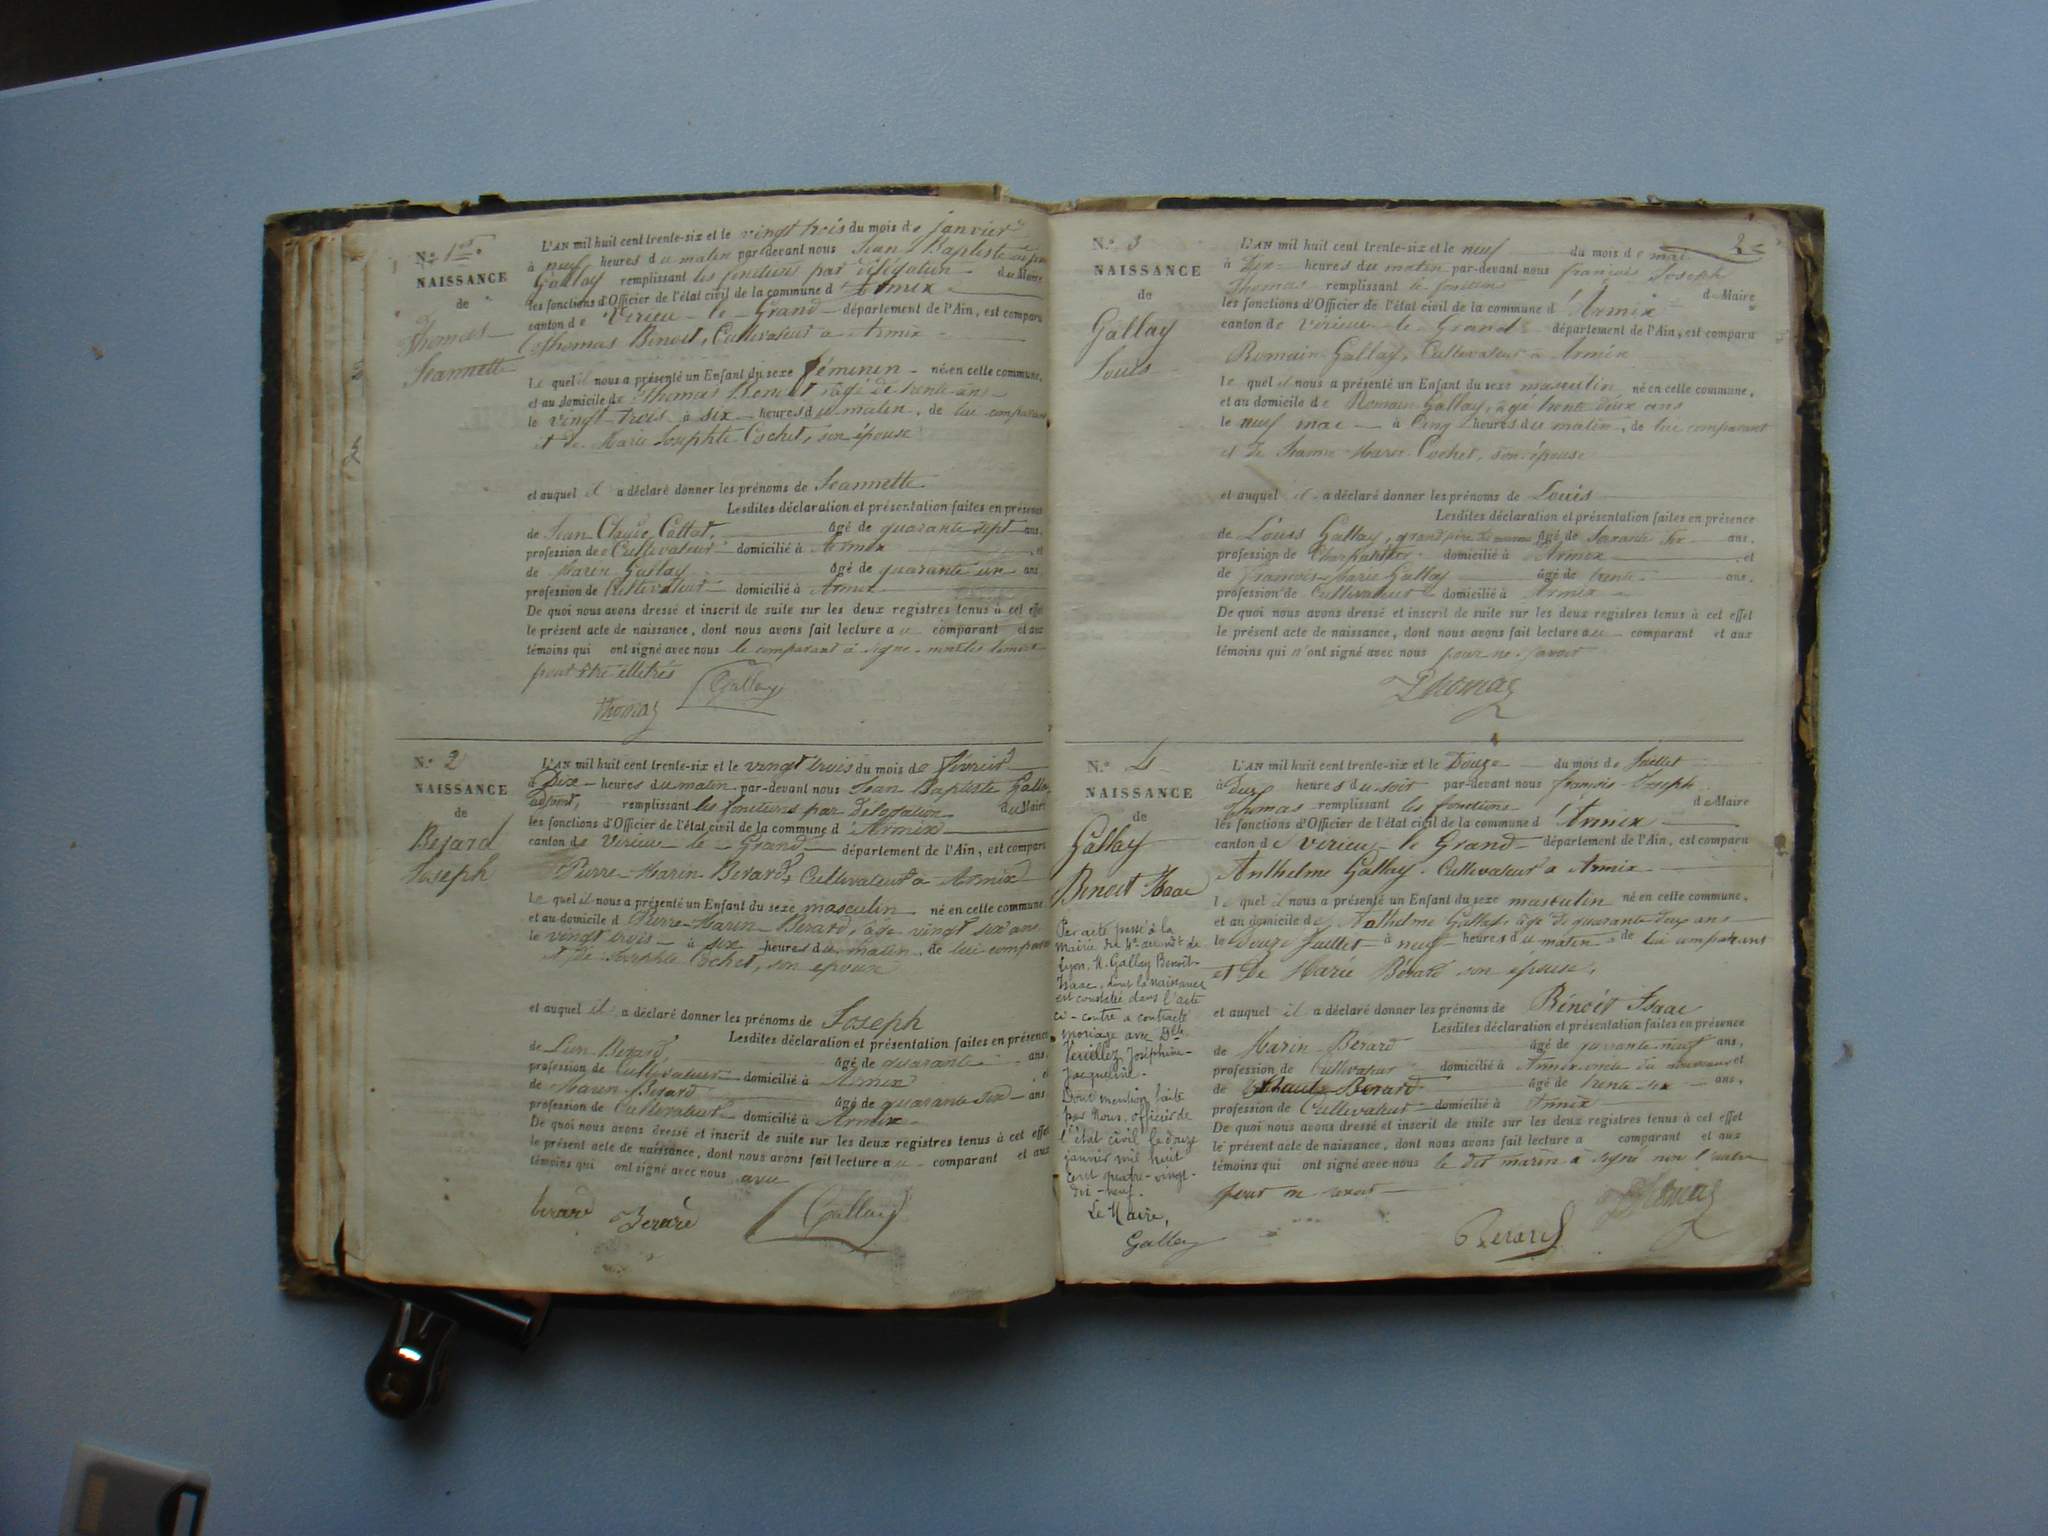 N.° 1er
NAISSANCE
de
Thomas
Jeannette
L'AN mil huit cent trente-six et le vingt trois du mois de janvier
à neuf heures du matin par-devant nous Jean Baptiste
Gallay remplissant les fonctions par délégation du Maire
les fonctions d'Officier de l'état civil de la commune d'Armix
canton de Virieu-le-Grand département de l'Ain, est comparu
Thomas Benoit, Cultivateur a Armix
Le quel il nous a présenté un Enfant du sexe féminin né en cette commune,
et au domicile de Thomas Benoit agé de trente ans
le vingt trois à six heures du matin, de lui comparant
et de Marie Josephte Cochet, son épouse
et auquel il a déclaré donner les prénoms de Jeannette
Lesdites déclaration et présentation faites en présence
de Jean Claude Cottat, âgé de quarante sept ans,
profession de Cultivateur domicilié à Armix et
de Marin Gallay âgé de quarante un ans,
profession de Cultivateur domicilié à Armix
De quoi nous avons dressé et inscrit de suite sur les deux registres tenus à cet effet
le présent acte de naissance, dont nous avons fait lecture au comparant et aux
témoins qui ont signé avec nous le comparant à signé
pour être illétrés
Thomas Gallay
N.° 2
NAISSANCE
de
Berard
Joseph
L'AN mil huit cent trente-six et le vingt trois du mois de février
à Dix heures du matin par-devant nous Jean Baptiste Gallay
adjoint, remplissant les fonctions par délégation du Maire
les fonctions d'Officier de l'état civil de la commune d'Armix
canton de Virieu-le-Grand département de l'Ain, est comparu
Pierre-Marin Berard, Cultivateur a Armix
Le quel il nous a présenté un Enfant du sexe masculin né en cette commune
et au domicile d Pierre-Marin Berard, age vingt six ans
le vingt trois à six heures du matin, de lui comparant
et de Josephte Cochet, son épouse
et auquel il a déclaré donner les prénoms de Joseph
Lesdites déclaration et présentation faites en présence
de Berard, âgé de quarante ans,
profession de Cultivateur domicilié à Armix et
de Marin Berard âgé de quarante six ans
profession de Cultivateur domicilié à Armix
De quoi nous avons dressé et inscrit de suite sur les deux registres tenus à cet effet
le présent acte de naissance, dont nous avons fait lecture au comparant et aux
témoins qui ont signé avec nous avec
berard Berard Gallay
2
N.° 3
NAISSANCE
de
Gallay
Louis
L'AN mil huit cent trente-six et le neuf du mois de mai
à Dix heures du matin par-devant nous françois Joseph
Thomas remplissant les fonctions de Maire
les fonctions d'Officier de l'état civil de la commune d'Armix
canton de Virieu-le-Grand département de l'Ain, est comparu
Romain Gallay, Cultivateur à Armix
Le quel il nous a présenté un Enfant du sexe masculin né en cette commune,
et au domicile de Romain Gallay, agé trente deux ans
le neuf mai à Cinq heures du matin, de lui comparant
et de Marie Cochet, son épouse
et auquel il a déclaré donner les prénoms de Louis
Lesdites déclaration et présentation faites en présence
de Louis Gallay, grand père âgé de soixante six ans,
profession de Charpentier domicilié à Armix et
de François-Marie Gallay âgé de trente ans,
profession de Cultivateur domicilié à Armix
De quoi nous avons dressé et inscrit de suite sur les deux registres tenus à cet effet
le présent acte de naissance, dont nous avons fait lecture au comparant et aux
témoins qui n'ont signé avec nous pour ne savoir
Thomas
N.° 4
NAISSANCE
de
Gallay
Benoit Isaac
Par acte passé à la
Mairie du 4e arrondt de
Lyon, M. Gallay Benoît-
Isaac, dont la naissance
est constatée dans l'acte
ci-contre a contracté
mariage avec Dlle
Veuillez Joséphine-
Jacqueline.
Dont mention faite
par Nous, officier de
l'état civil le onze
janvier mil huit
cent quatre-vingt-
dix-neuf.
Le Maire,
Gallay
L'AN mil huit cent trente-six et le Douze du mois de Juillet
à Deux heures du soir par-devant nous françois Joseph
Thomas remplissant les fonctions de Maire
les fonctions d'Officier de l'état civil de la commune d'Armix
canton de Virieu-le-Grand département de l'Ain, est comparu
Anthelme Gallay, Cultivateur a Armix
Le quel il nous a présenté un Enfant du sexe masculin né en cette commune,
et au domicile de Anthelme Gallay, age de quarante deux ans
le Douze Juillet à neuf heures du matin de lui comparant
et de Marie Bérard son épouse,
et auquel il a déclaré donner les prénoms de Bénoit Isaac
Lesdites déclaration et présentation faites en présence
de Marin Berard âgé de quarante neuf ans,
profession de Cultivateur domicilié à Armix oncle du nouveau et
de Berard âgé de trente six ans,
profession de Cultivateur domicilié à Armix
De quoi nous avons dressé et inscrit de suite sur les deux registres tenus à cet effet
le présent acte de naissance, dont nous avons fait lecture a comparant et aux
témoins qui ont signé avec nous le dit marin à signé non l'autre
pour ne savoir
Berard Thomas